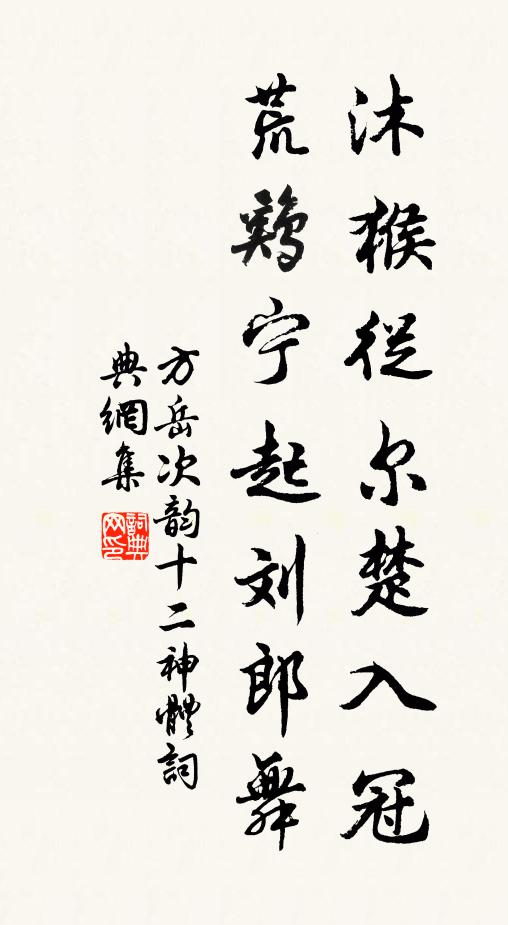 沐猴從尔楚入冠
荒鷄宁起刘郎舞
方岳次韵十二神體詞
典網集
詞典网印